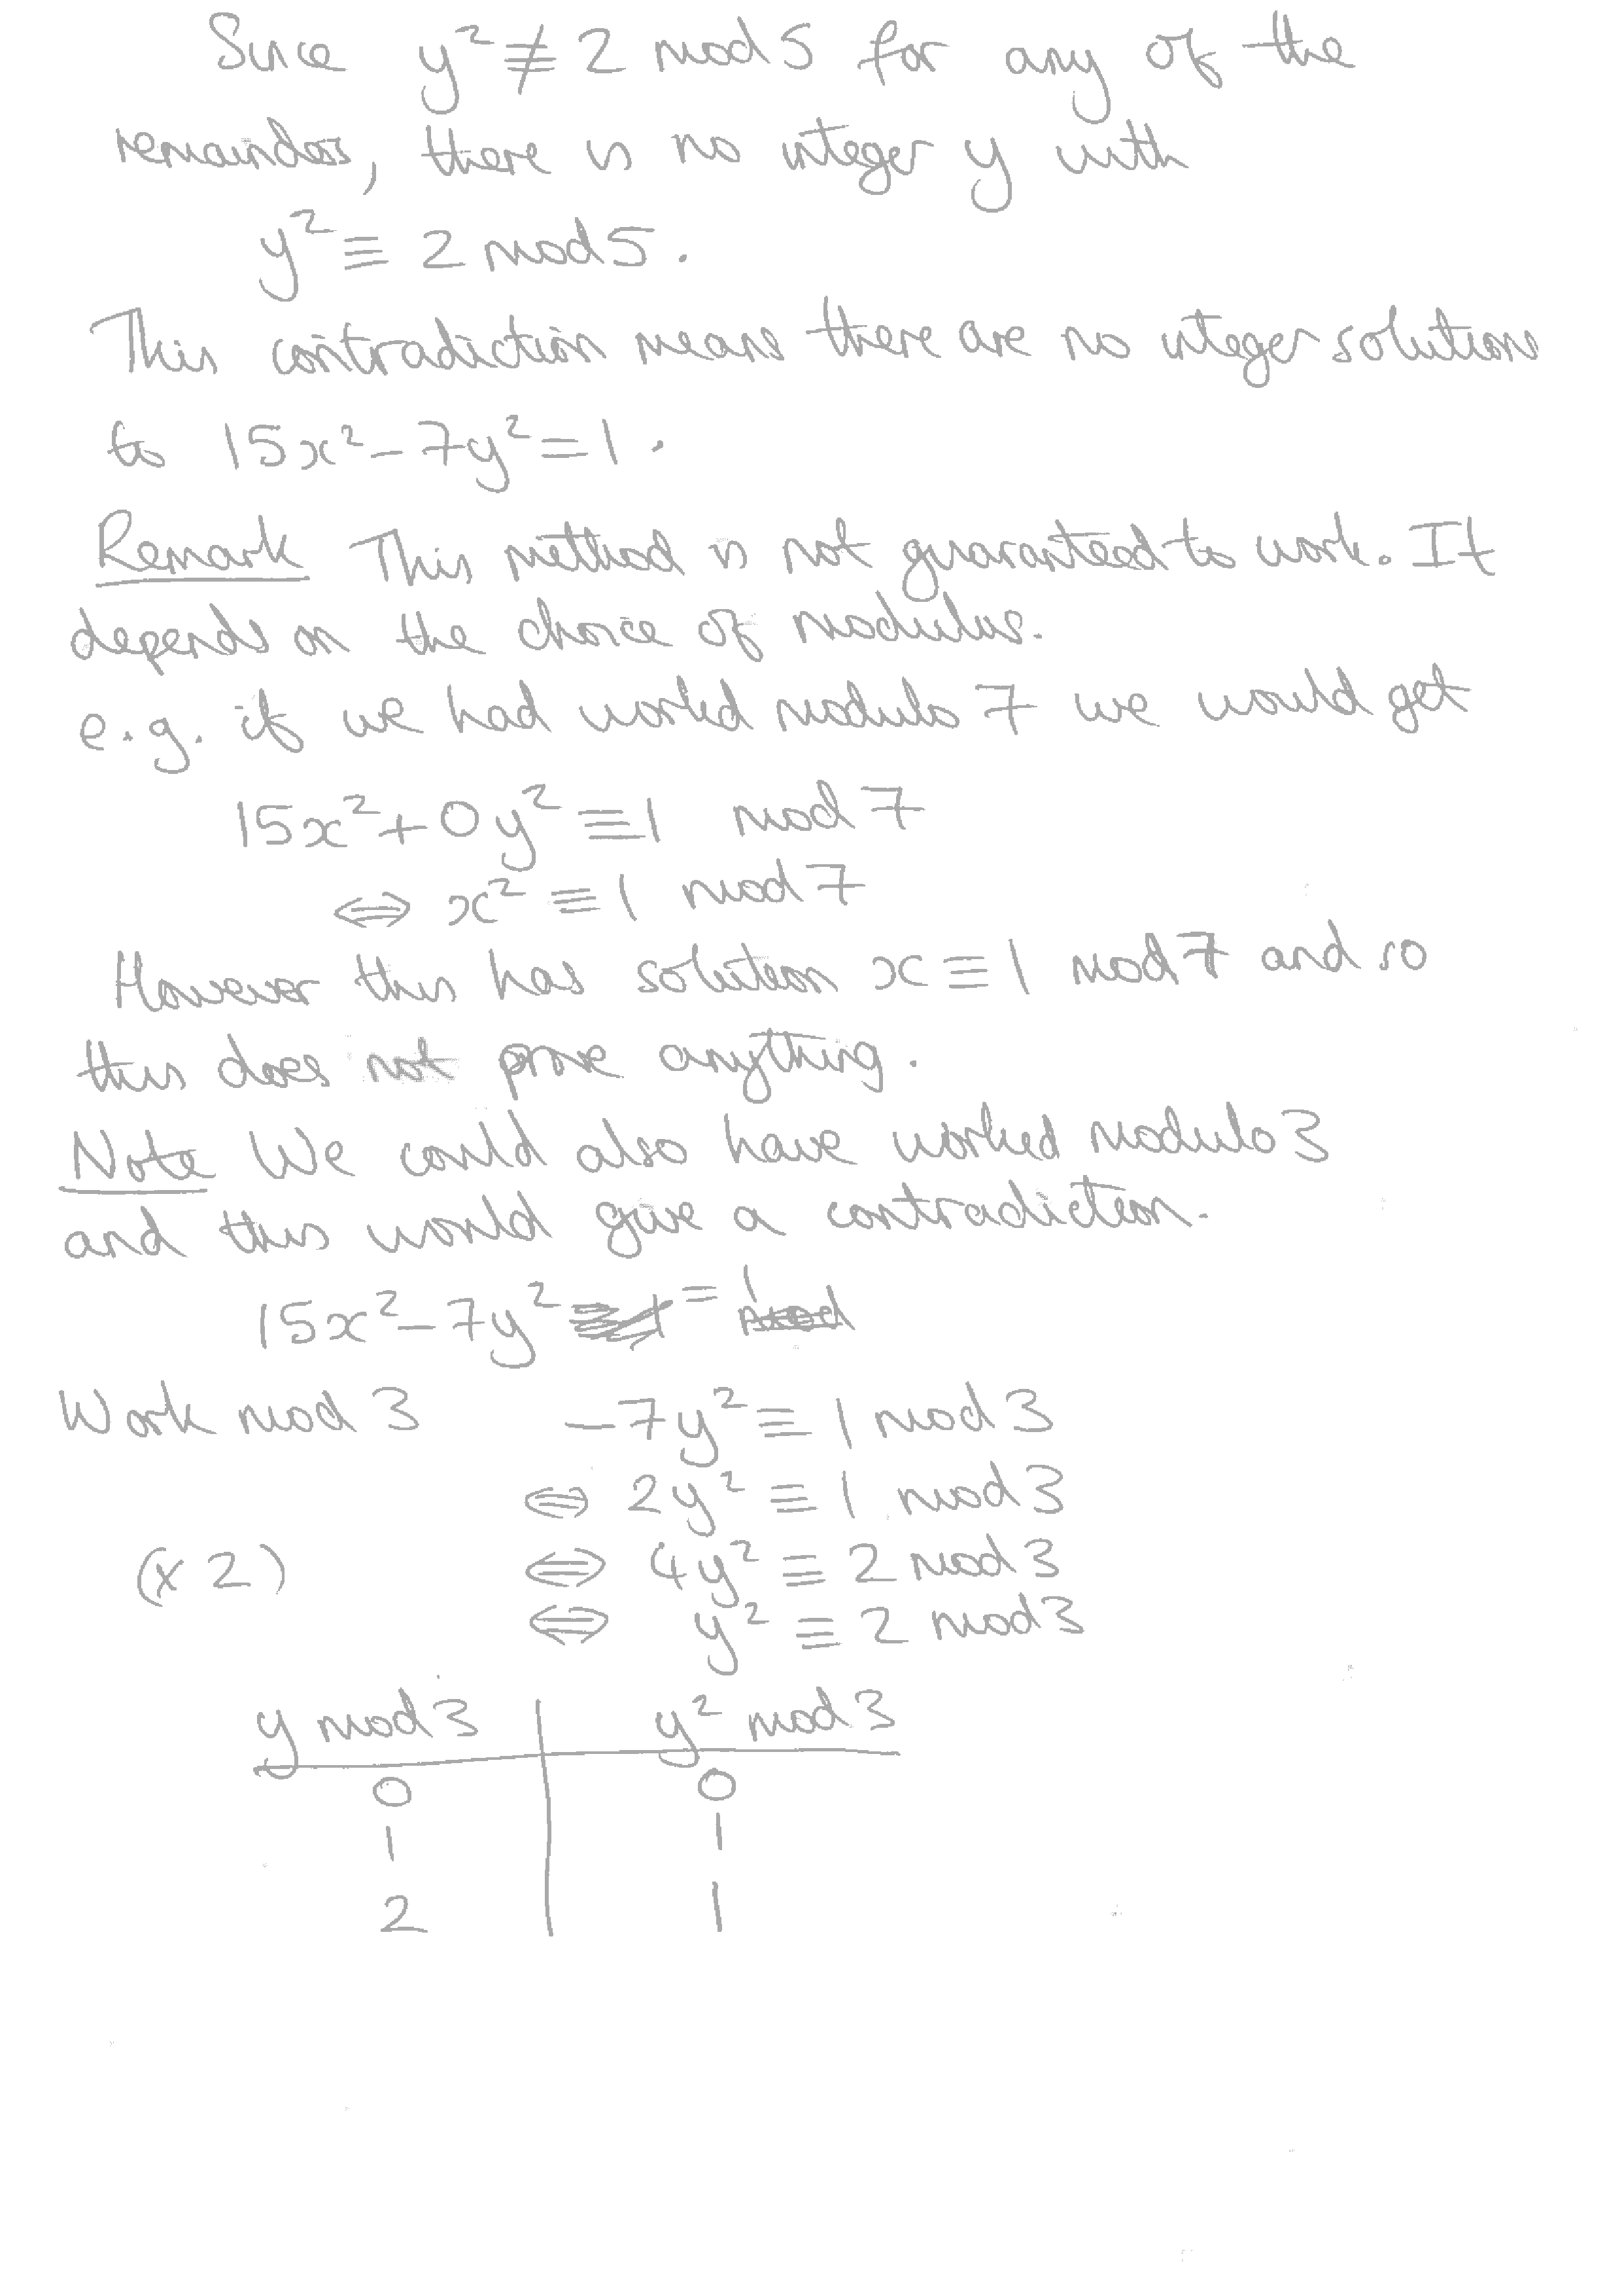 Since y² ≢ 2 mod 5 for any of the
remainders, there is no integer y with
y² ≡ 2 mod 5.
This contradiction means there are no integer solutions
to 15x² - 7y² = 1.
Remark This method is not guaranteed to work. It
depends on the choice of modulus.
e.g. if we had worked modulo 7 we would get
15x² + 0y² ≡ 1 mod 7
⇔ x² ≡ 1 mod 7
However this has solution x ≡ 1 mod 7 and so
this does not prove anything.
Note We could also have worked modulo 3
and this would give a contradiction.
15x² - 7y² = 1
Work mod 3 -7y² ≡ 1 mod 3
⇔ 2y² ≡ 1 mod 3
(x 2) ⇔ 4y² ≡ 2 mod 3
⇔ y² ≡ 2 mod 3
y mod 3 | y² mod 3
0 | 0
1 | 1
2 | 1